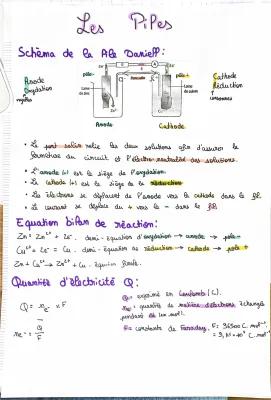 Les Piles
Schéma de la Pile Daniell:
Anode
Oxydation
négative
pôle -
pôle +
Cathode
Réduction
Lame de zinc
Lame de cuivre
Anode
Cathode
• Le pont salin relie les deux solutions afin d'assurer la
fermeture du circuit et l'électro-neutralité des solutions.
• L'anode (-) est le siège de l'oxydation
• La cathode (+) est le siège de la réduction
• Les électrons se déplacent de l'anode vers la cathode dans le fil
• Le courant se déplace du + vers le - dans le fil
Equation bilan de réaction:
Zn = Zn²⁺ + 2e⁻ demi-équation d'oxydation → anode → pôle -
Cu²⁺ + 2e⁻ = Cu demi-équation de réduction → cathode → pôle +
Zn + Cu²⁺ → Zn²⁺ + Cu équation finale
Quantité d'électricité Q:
Q = ne⁻ × F
ne⁻ = Q/F
Q = exprimé en Coulombs (C).
ne⁻: quantité de matière d'électrons échangée
pendant en mol.
F = constante de Faraday, F = 96500 C.mol⁻¹